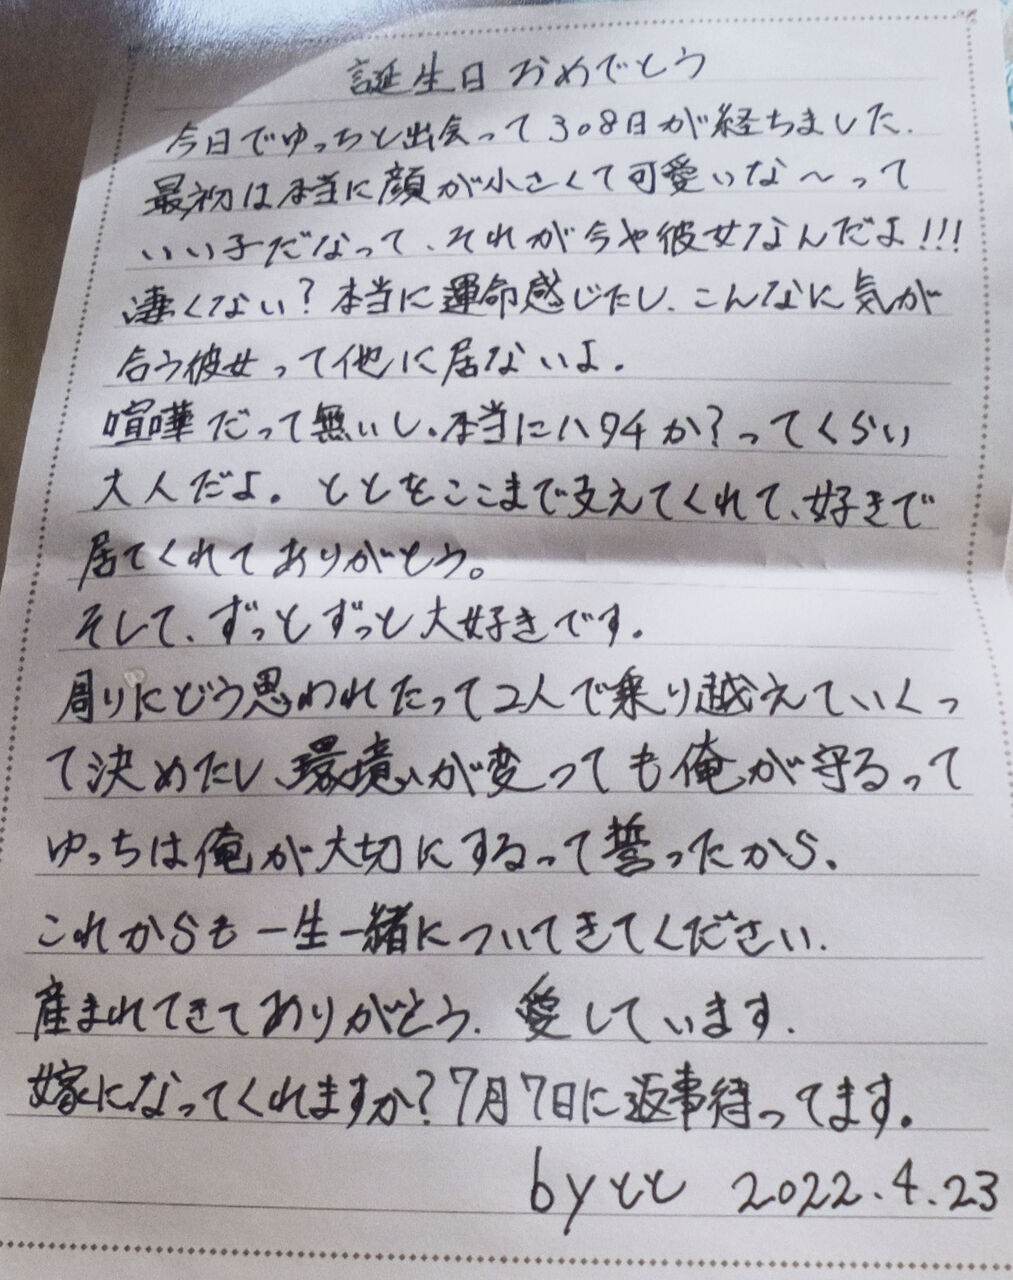 誕生日おめでとう
今日でゆっちと出会って308日が経ちました.
最初は本当に顔が小さくて可愛いな〜って
いい子だなって、それが今や彼女なんだよ!!!
凄くない?本当に運命感じたし、こんなに気が
合う彼女って他に居ないよ.
喧嘩だって無いし、本当にハタチか?ってくらい
大人だよ。ととをここまで支えてくれて、好きで
居てくれてありがとう。
そして、ずっとずっと大好きです.
周りにどう思われたって2人で乗り越えていくっ
て決めたし、環境が変っても俺が守るって
ゆっちは俺が大切にするって誓ったから、
これからも一生一緒についてきてください.
産まれてきてありがとう. 愛しています.
嫁になってくれますか?7月7日に返事待ってます。
byとと 2022.4.23